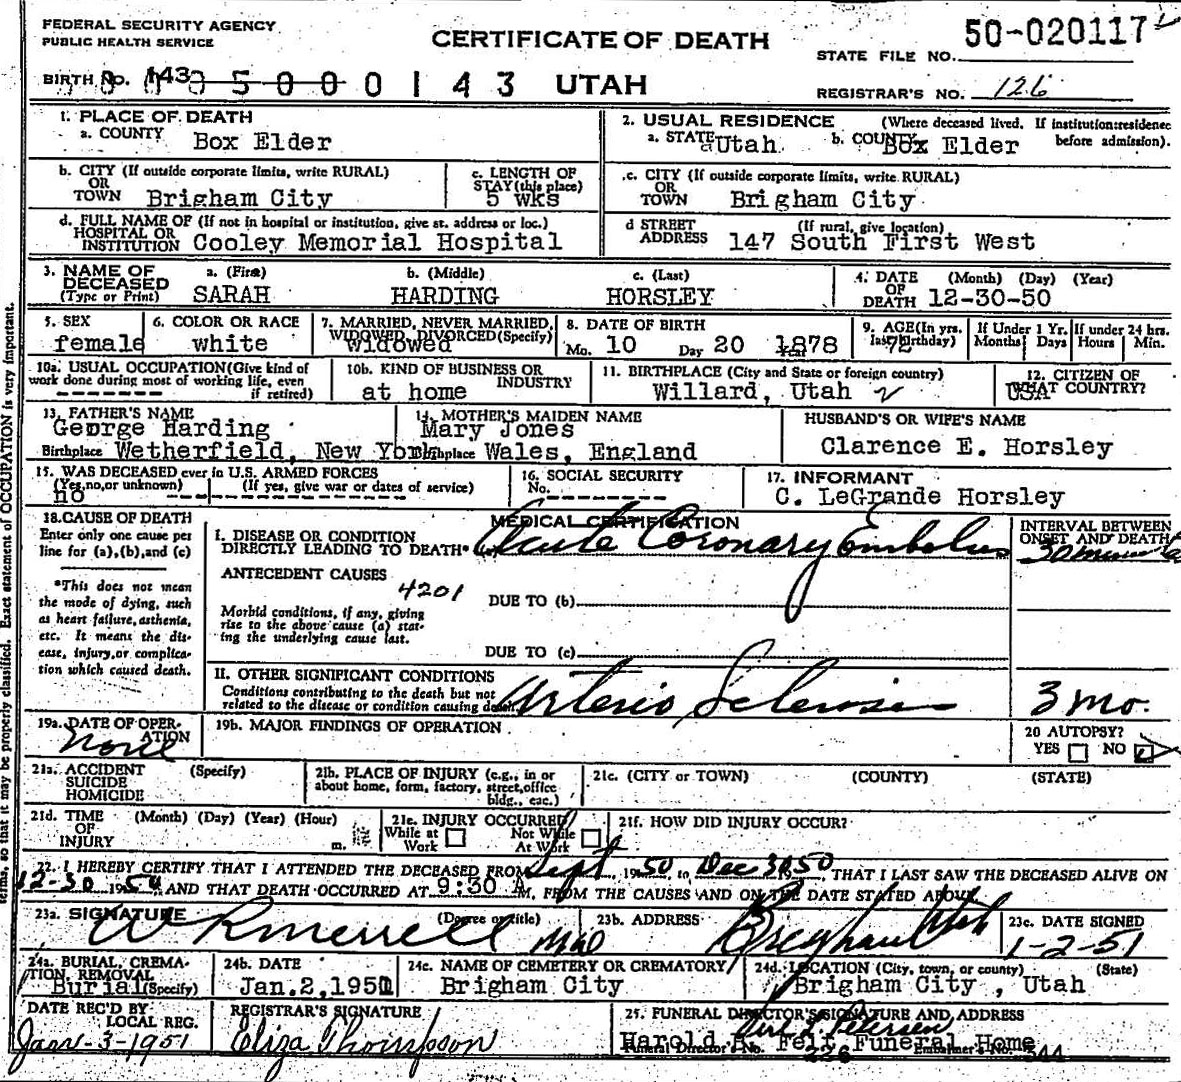 FEDERAL SECURITY AGENCY
PUBLIC HEALTH SERVICE
CERTIFICATE OF DEATH
STATE FILE NO. 50-020117
BIRTH No. 143 0 5 0 0 0 0 1 4 3 UTAH
REGISTRAR'S NO. 126
1. PLACE OF DEATH
a. COUNTY Box Elder
2. USUAL RESIDENCE (Where deceased lived. If institution: residence before admission).
a. STATE Utah b. COUNTY Box Elder
b. CITY (If outside corporate limits, write RURAL)
OR
TOWN Brigham City
c. LENGTH OF
STAY (this place)
5 wks
c. CITY (If outside corporate limits, write RURAL)
OR
TOWN Brigham City
d. FULL NAME OF (If not in hospital or institution, give st. address or loc.)
HOSPITAL OR
INSTITUTION Cooley Memorial Hospital
d STREET (If rural, give location)
ADDRESS 147 South First West
3. NAME OF
DECEASED
(Type or Print)
a. (First) b. (Middle) c. (Last)
SARAH HARDING HORSLEY
4. DATE (Month) (Day) (Year)
OF
DEATH 12-30-50
5. SEX
female
6. COLOR OR RACE
white
7. MARRIED, NEVER MARRIED,
WIDOWED, DIVORCED (Specify)
widowed
8. DATE OF BIRTH
Mo. 10 Day 20 Year 1878
9. AGE (In yrs.
last birthday)
72
If Under 1 Yr.
Months Days
If under 24 hrs.
Hours Min.
10a. USUAL OCCUPATION (Give kind of
work done during most of working life, even
if retired)
10b. KIND OF BUSINESS OR
INDUSTRY
at home
11. BIRTHPLACE (City and State or foreign country)
Willard, Utah
12. CITIZEN OF
WHAT COUNTRY?
USA
13. FATHER'S NAME
George Harding
Birthplace Wetherfield, New York
14. MOTHER'S MAIDEN NAME
Mary Jones
Birthplace Wales, England
HUSBAND'S OR WIFE'S NAME
Clarence E. Horsley
15. WAS DECEASED ever in U.S. ARMED FORCES
(Yes, no, or unknown) (If yes, give war or dates of service)
no
16. SOCIAL SECURITY
No.
17. INFORMANT
C. LeGrande Horsley
18. CAUSE OF DEATH
Enter only one cause per
line for (a), (b), and (c)
*This does not mean
the mode of dying, such
as heart failure, asthenia,
etc. It means the dis-
ease, injury, or complica-
tion which caused death.
MEDICAL CERTIFICATION
I. DISEASE OR CONDITION
DIRECTLY LEADING TO DEATH* (a) Acute Coronary Embolus
INTERVAL BETWEEN
ONSET AND DEATH
30 minutes
ANTECEDENT CAUSES
4201
DUE TO (b)
Morbid conditions, if any, giving
rise to the above cause (a) stat-
ing the underlying cause last.
DUE TO (c)
II. OTHER SIGNIFICANT CONDITIONS
Conditions contributing to the death but not
related to the disease or condition causing death
Arterio Sclerosis 3 mo.
19a. DATE OF OPER-
ATION
none
19b. MAJOR FINDINGS OF OPERATION
20 AUTOPSY?
YES NO
21a. ACCIDENT (Specify)
SUICIDE
HOMICIDE
21b. PLACE OF INJURY (e.g., in or
about home, form, factory, street, office
bldg., eac.)
21c. (CITY or TOWN) (COUNTY) (STATE)
21d. TIME (Month) (Day) (Year) (Hour)
OF
INJURY m.
21e. INJURY OCCURRED
While at Work Not While At Work
21f. HOW DID INJURY OCCUR?
22. I HEREBY CERTIFY THAT I ATTENDED THE DECEASED FROM Sept, 1950, to Dec 30, 50, THAT I LAST SAW THE DECEASED ALIVE ON
12-30 1950 AND THAT DEATH OCCURRED AT 9:30 A M, FROM THE CAUSES AND ON THE DATE STATED ABOVE.
23a. SIGNATURE (Degree or title)
W R Merrell MD
23b. ADDRESS
Brigham Utah
23c. DATE SIGNED
1-2-51
24a. BURIAL, CREMA-
TION, REMOVAL
(Specify) Burial
24b. DATE
Jan. 2, 1951
24c. NAME OF CEMETERY OR CREMATORY
Brigham City
24d. LOCATION (City, town, or county) (State)
Brigham City, Utah
DATE REC'D BY
LOCAL REG.
Jan-3-1951
REGISTRAR'S SIGNATURE
Eliza Thompson
25. FUNERAL DIRECTOR'S SIGNATURE AND ADDRESS
Harold R. Felt Funeral Home
Funeral Director's No. 226 Embalmer's No. 344
terms, so that it may be properly classified. Exact statement of OCCUPATION is very important.